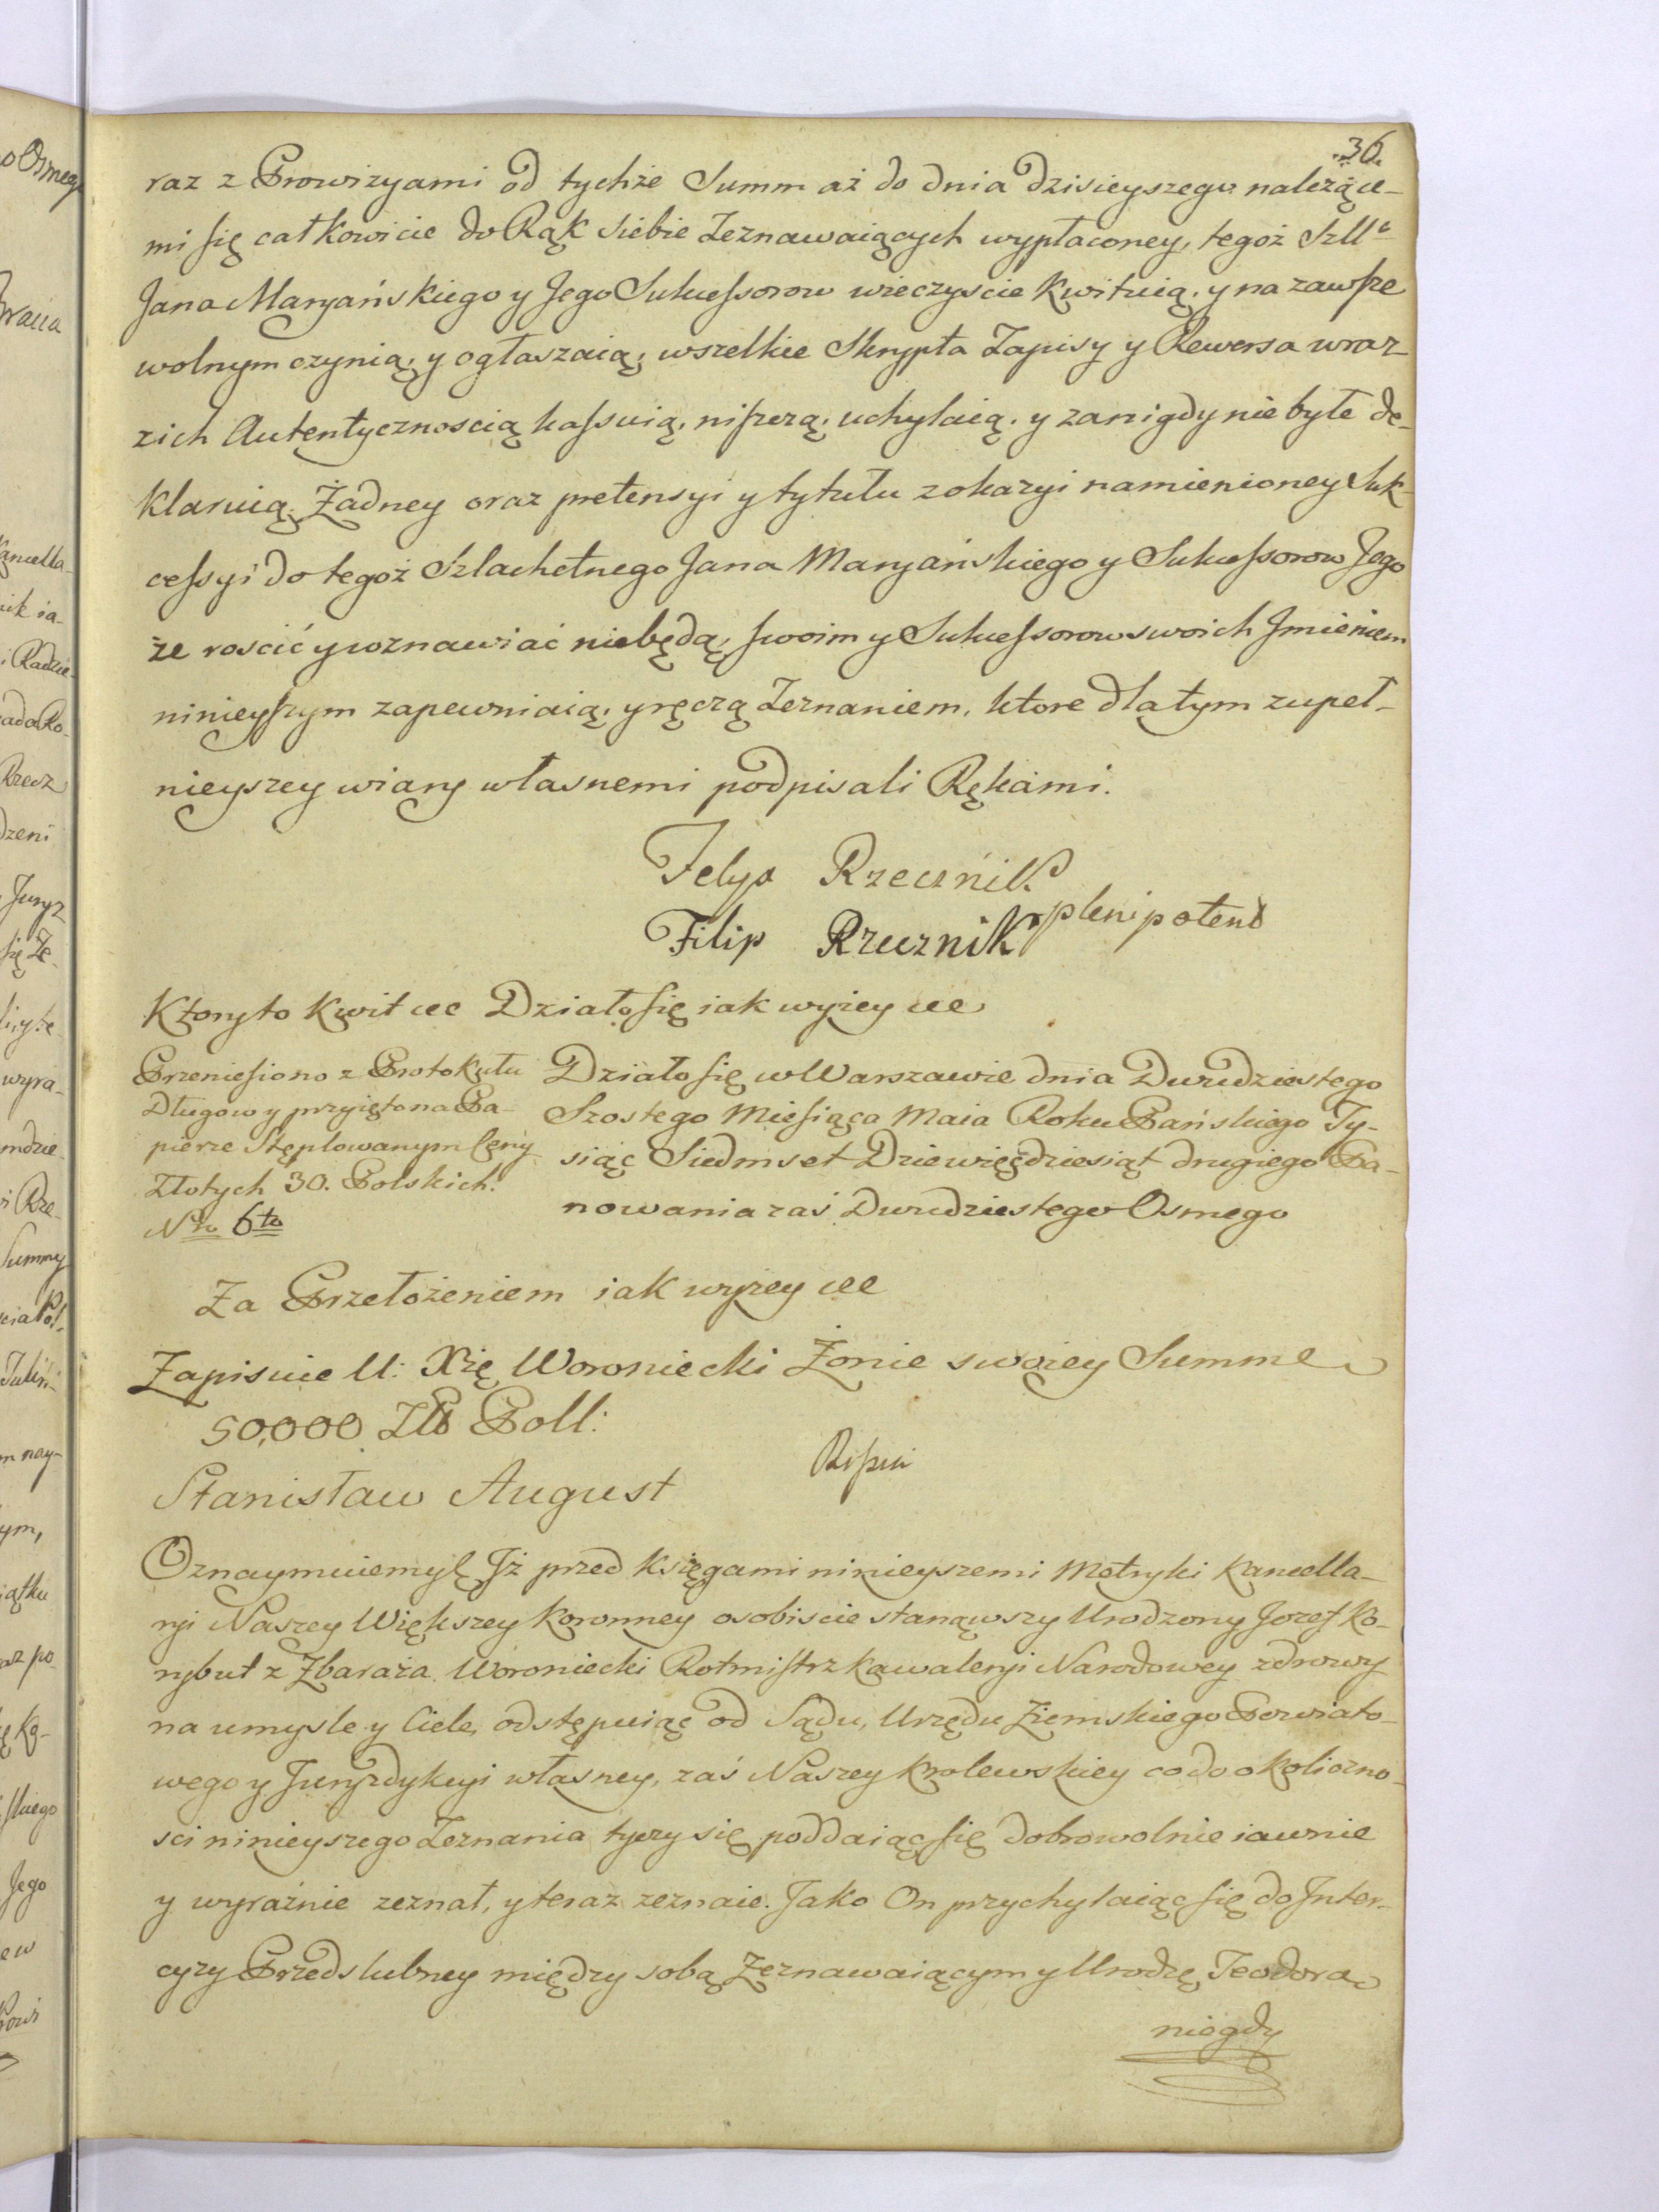 36.
raz z Prowizyami od tychże Summ aż do dnia dzisieyszego należące-
mi się całkowicie do Rąk siebie Zeznawaiących wypłaconey, tegoż Szll°
Jana Maryańskiego y Jego Sukcessorow wieczyscie kwituią, y na zawsze
wolnym czynią, y ogłaszaią, wszelkie Skrypta Zapisy y Rewersa wraz
z ich Autentycznoscią kassuią, niszczą, uchylaią, y za nigdy niebyłe de-
klaruią, Żadney oraz pretensyi y tytułu z okazyi namienioney Suk-
cessyi do tegoż Szlachetnego Jana Maryańskiego y Sukcessorow Jego
że roscić y wznawiać niebędą, swoim y Sukcessorow swoich Jmieniem
ninieyszym zapewniaią, y ręczą Zeznaniem, ktore dla tym zupeł-
nieyszey wiary własnemi podpisali Rękami.
Felyx Rzecznik
Filip Rzecznik plenipotent
Ktoryto Kwit etc Działo się iak wyżey etc
Przeniesiono z Protokułu
Długow y przyięto na Pa-
pierze Stęplowanym Ceny
Złotych 30. Polskich.
Nro 6to
Działo się w Warszawie dnia Dwudziestego
Szostego Miesiąca Maia Roku Pańskiego Ty-
siąc Siedmset Dziewięćdziesiąt drugiego Pa-
nowania zaś Dwudziestego Osmego
Za Przełożeniem iak wyżey etc
Zapisuie U: Xię Woroniecki Żonie swoiey Summę
50,000 Zło Poll:
Stanisław August
Oznaymuiemy etc Jż przed Księgami ninieyszemi Metryki Kancella-
ryi Naszey Większey Koronney osobiscie stanąwszy Urodzony Jozef Ko-
rybut z Zbaraża Woroniecki Rotmistrz Kawaleryi Narodowey zdrowy
na umysle y Ciele, odstępuiąc od Sądu, Urzędu Ziemskiego Powiato-
wego y Juryzdykcyi własney, zaś Naszey Krolewskiey co do okoliczno-
sci ninieyszego Zeznania tyczy się poddaiąc się dobrowolnie iawnie
y wyraźnie zeznał, y teraz zeznaie. Jako On przychylaiąc się do Jnter-
cyzy Przedslubney między sobą Zeznawaiącym y Urodzę Teodorą
niegdy